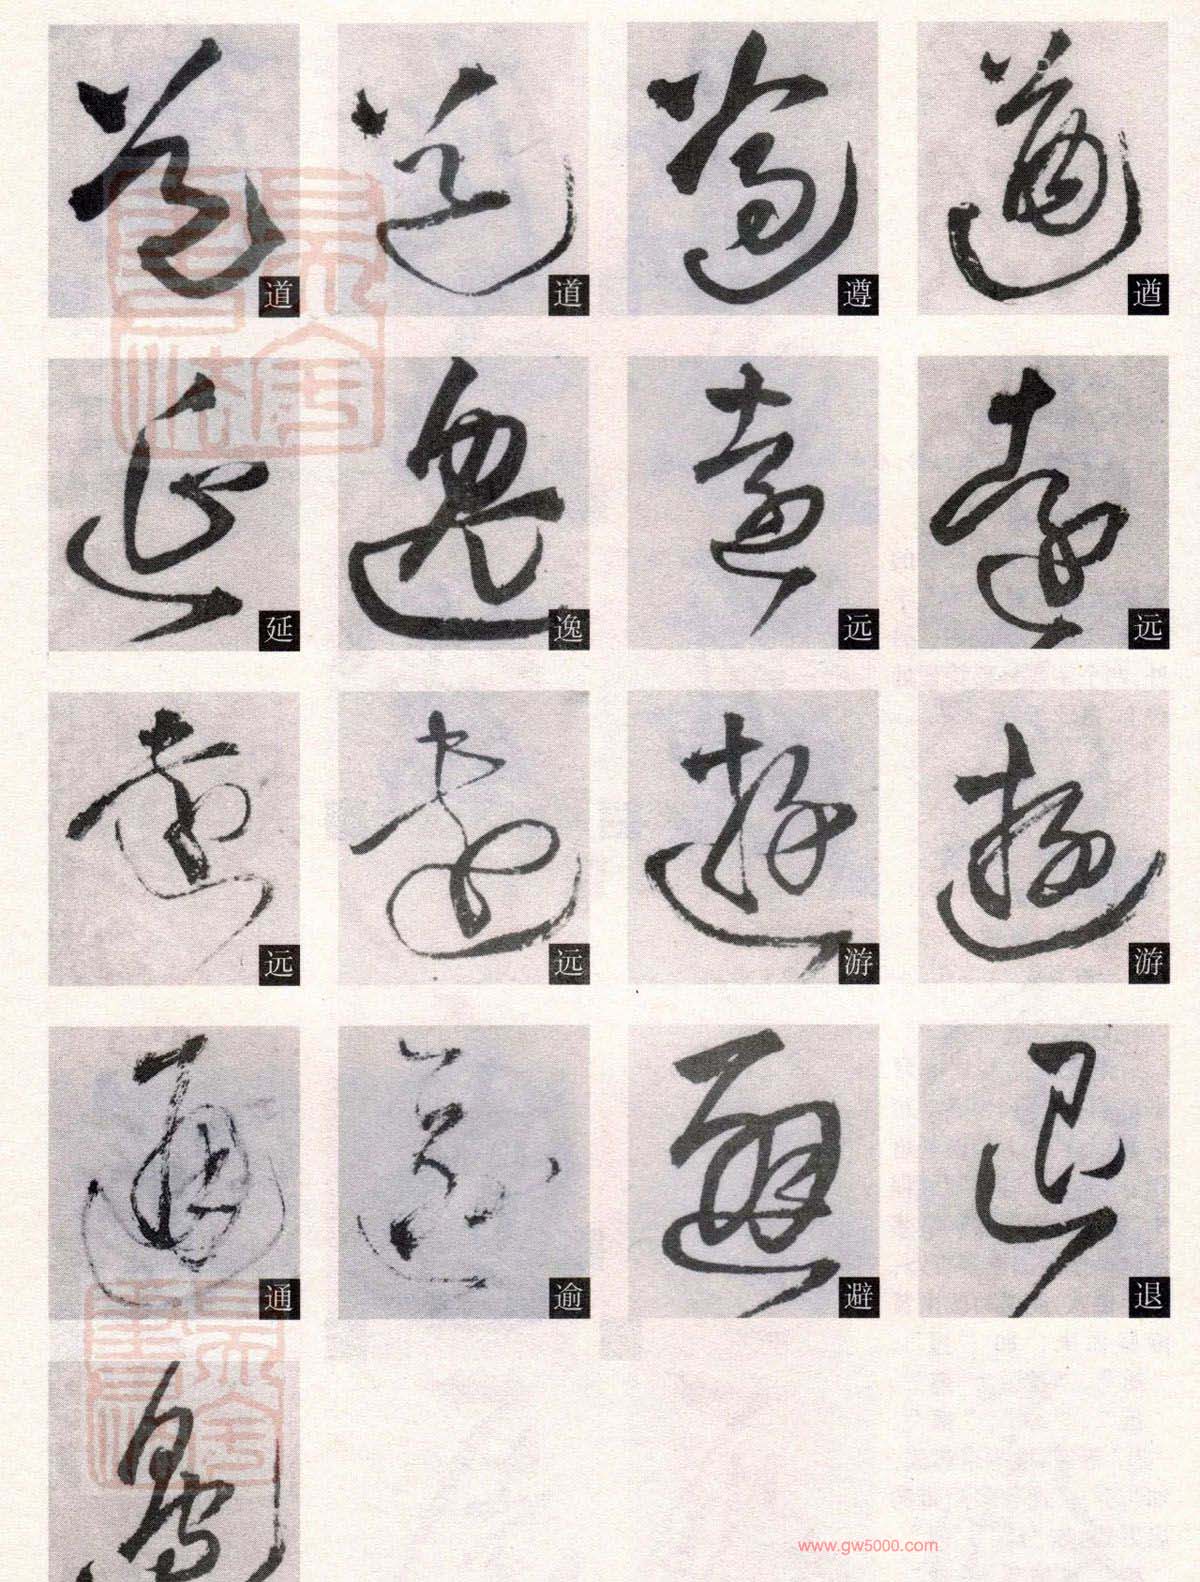 道 道 遵 遒
延 逸 远 远
远 远 游 游
通 逾 避 退
www.gw5000.com